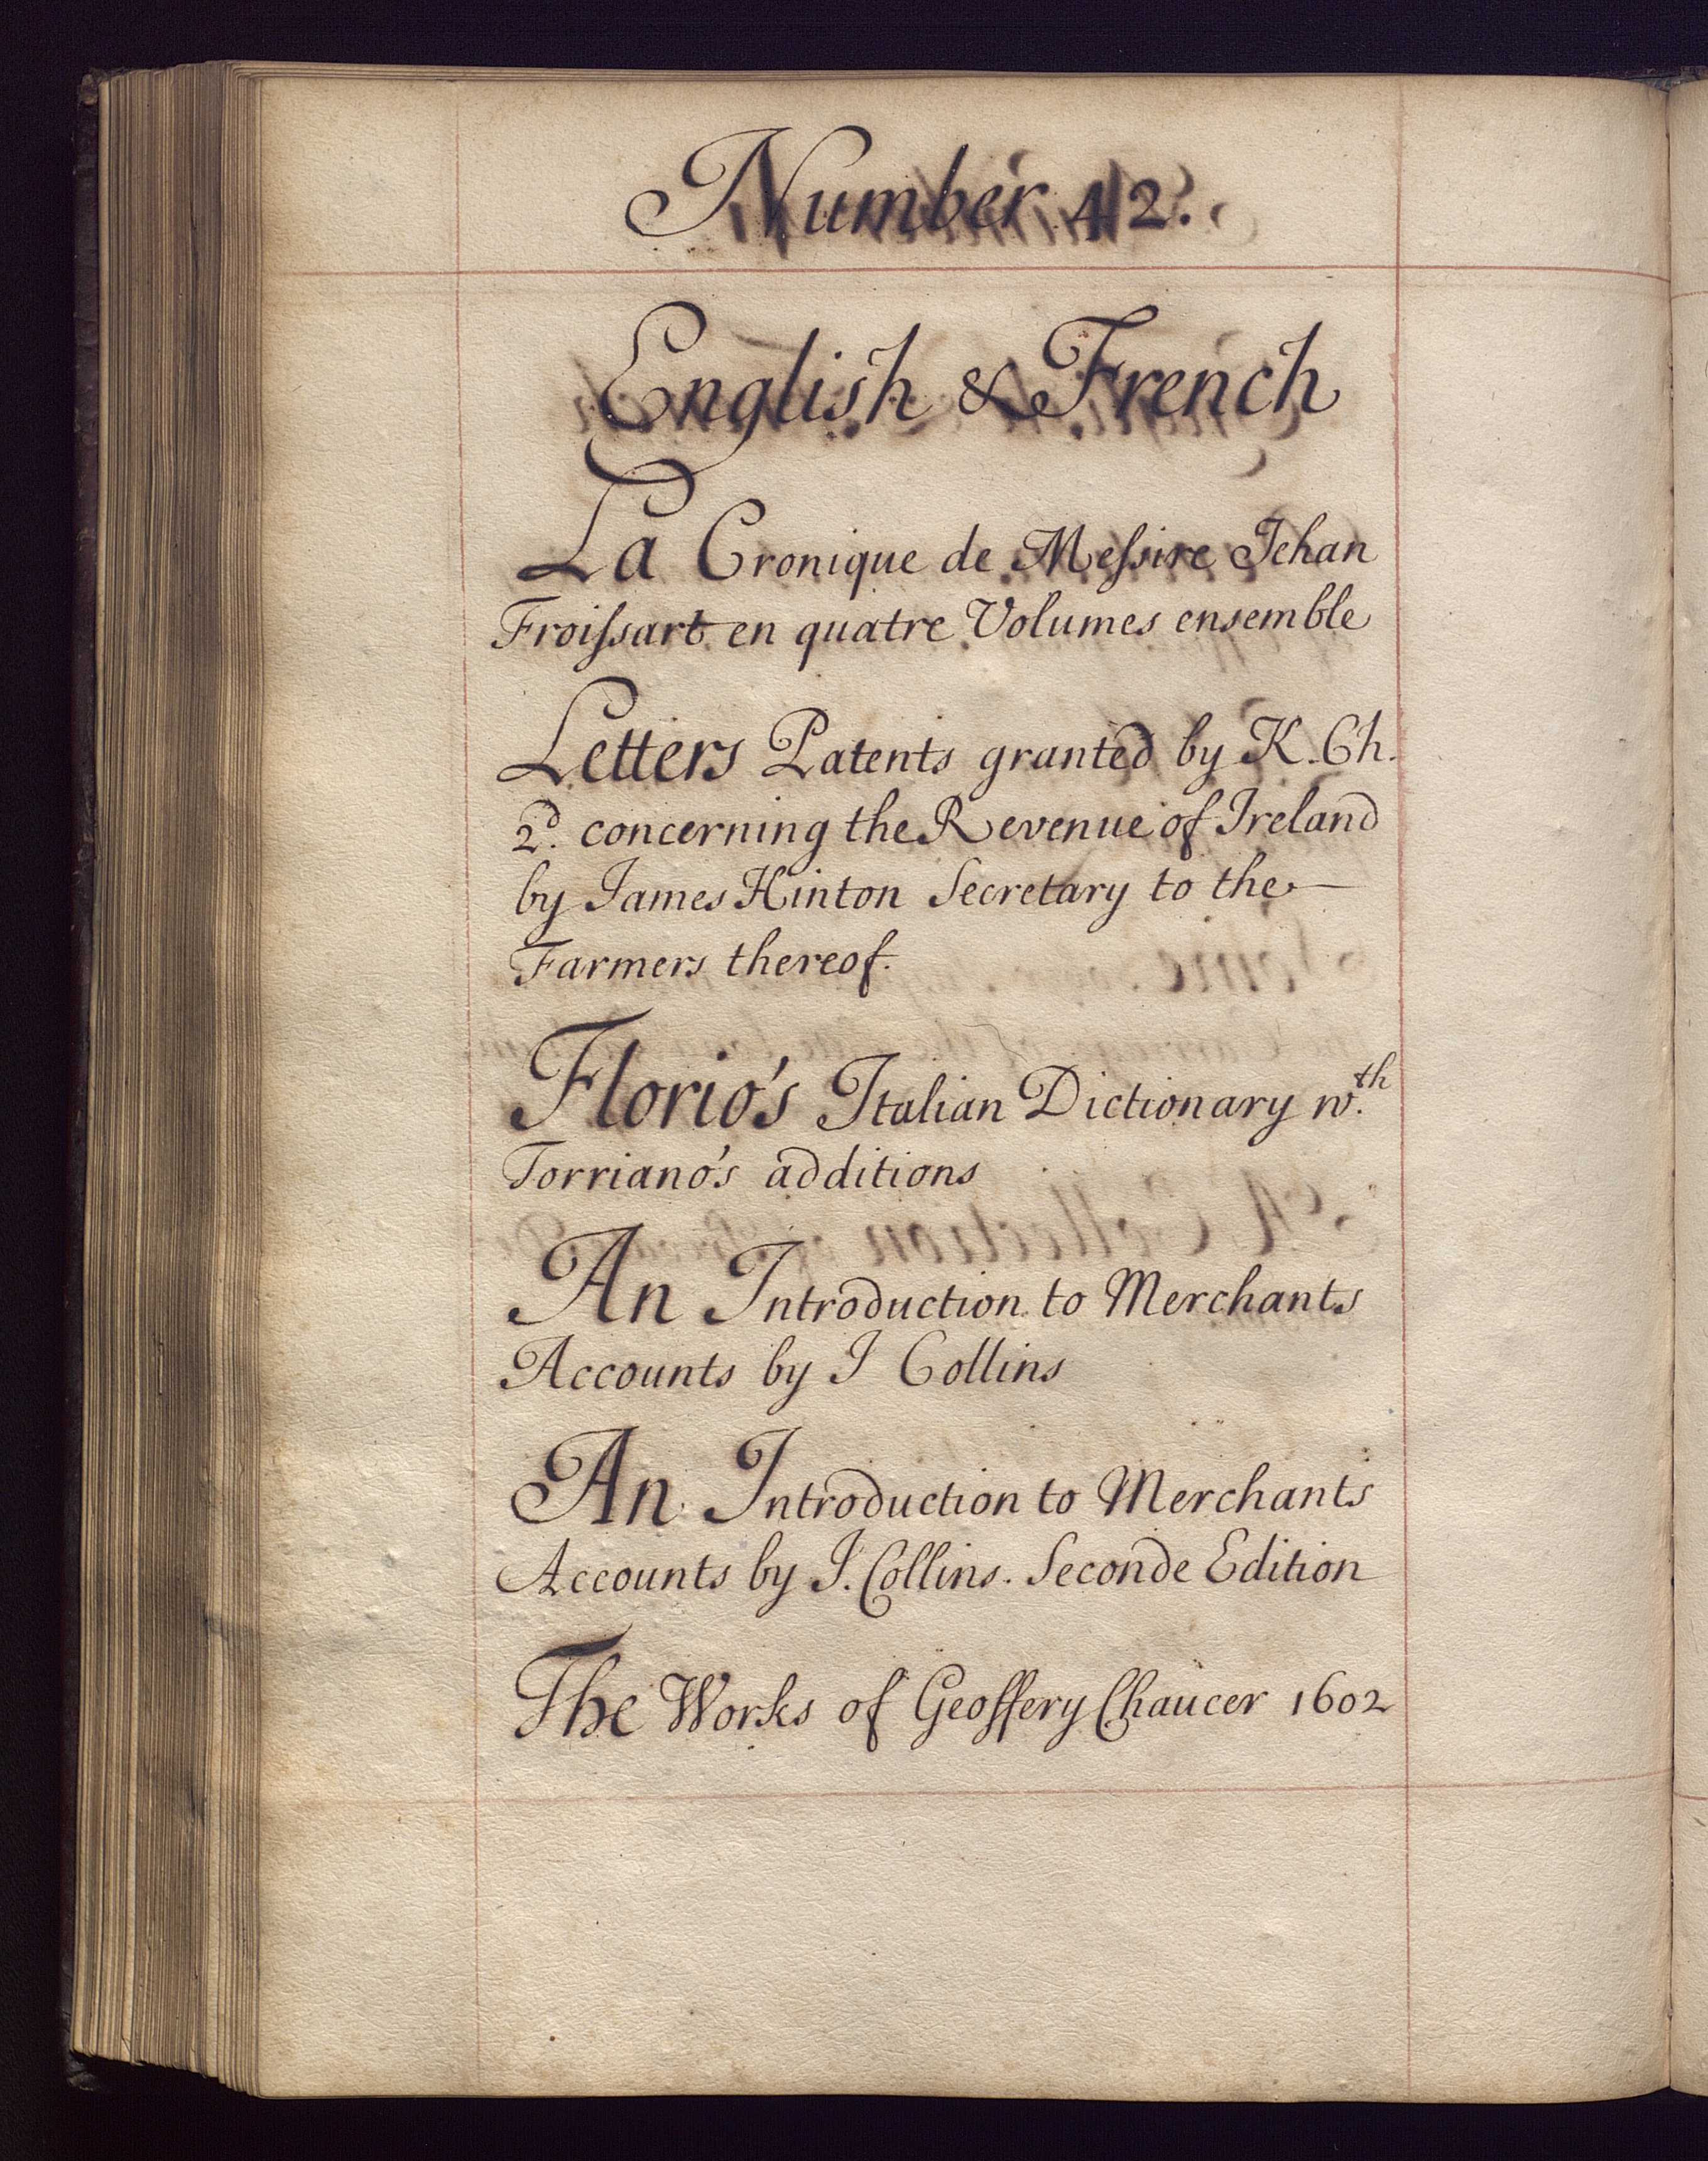 Number 42.
English & French
La Cronique de Meſsire Jehan
Froiſsart en quatre Volumes ensemble
Letters Patents granted by K. Ch.
2.d concerning the Revenue of Ireland
by James Hinton Secretary to the —
Farmers thereof.
Florio's Italian Dictionary w.th
Torriano's additions
An Introduction to Merchants
Accounts by J Collins
An Introduction to Merchants
Accounts by J. Collins. Seconde Edition
The Works of Geoffery Chaucer 1602